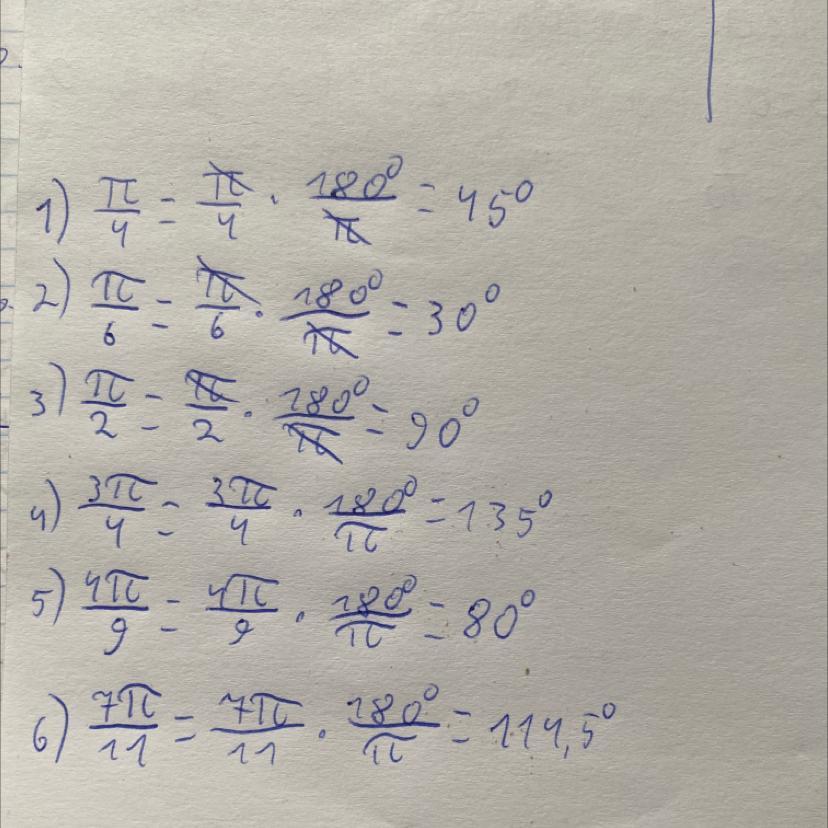 1) π/4 = π/4 · 180°/π = 45°
2) π/6 = π/6 · 180°/π = 30°
3) π/2 = π/2 · 180°/π = 90°
4) 3π/4 = 3π/4 · 180°/π = 135°
5) 4π/9 = 4π/9 · 180°/π = 80°
6) 7π/11 = 7π/11 · 180°/π = 114,5°